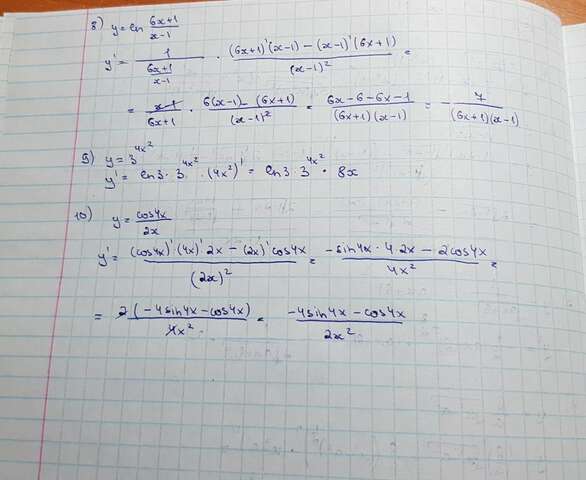 8) y = ln (6x+1)/(x-1)
y' = 1/((6x+1)/(x-1)) · ((6x+1)'(x-1) - (x-1)'(6x+1))/(x-1)² =
= (x-1)/(6x+1) · (6(x-1) - (6x+1))/(x-1)² = (6x-6-6x-1)/((6x+1)(x-1)) = - 7/((6x+1)(x-1))
9) y = 3^(4x²)
y' = ln3 · 3^(4x²) · (4x²)' = ln3 · 3^(4x²) · 8x
10) y = cos4x/2x
y' = ((cos4x)'(4x)' 2x - (2x)' cos4x)/(2x)² = (-sin4x · 4 · 2x - 2cos4x)/4x² =
= 2(-4sin4x - cos4x)/4x² = (-4sin4x - cos4x)/2x²